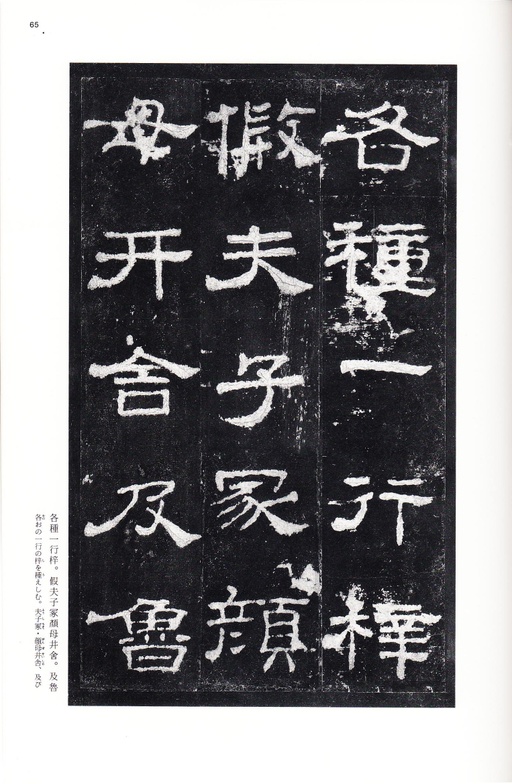 65
各種一行梓
假夫子冢顏
母井舍及魯
各種一行梓。假夫子冢顏母井舍。及魯
各おの一行の梓を種えしむ。夫子冢・顏母井舍、及び